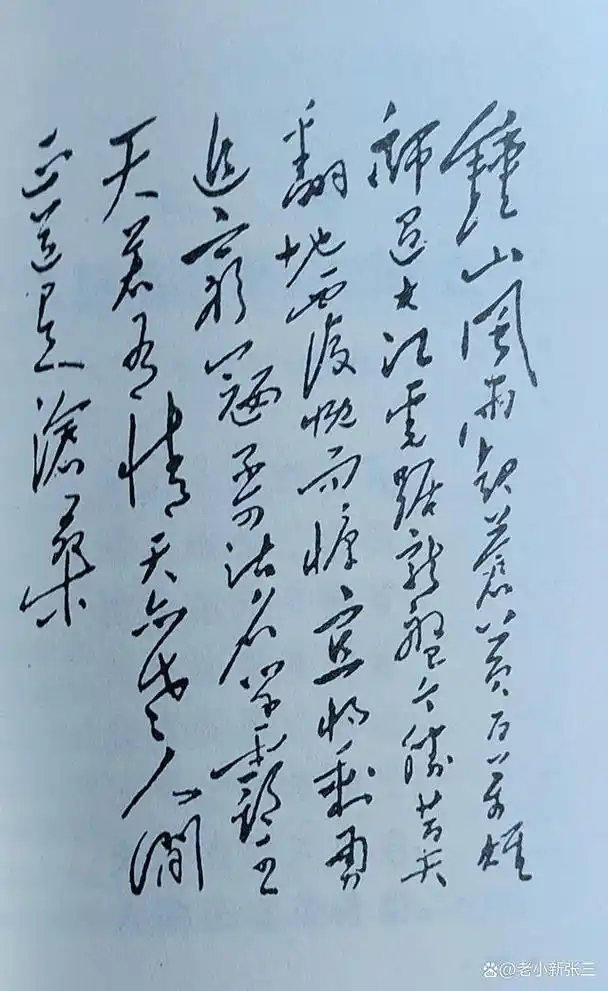 鐘山風雨起蒼黃百万雄
師過大江虎踞龍盤今勝昔天
翻地覆慨而慷宜将剩勇
追窮寇不可沽名學霸王
天若有情天亦老人間
正道是滄桑
@老小新张三